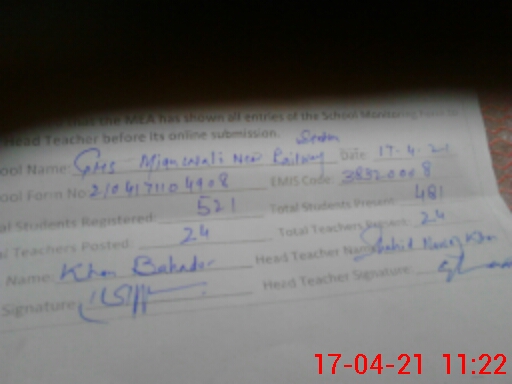 that the MEA has shown all entries of the School Monitoring
Head Teacher before its online submission.
ool Name: GMS Mianwali Near Railway Station Date: 17-4-21
ool Form No: 2104171104908 EMIS Code: 38320008
al Students Registered: 521 Total Students Present: 481
al Teachers Posted: 24 Total Teachers Present: 24
Name: Khan Bahadar Head Teacher Name: Shahid Nawaz Khan
Signature: Head Teacher Signature:
17-04-21 11:22